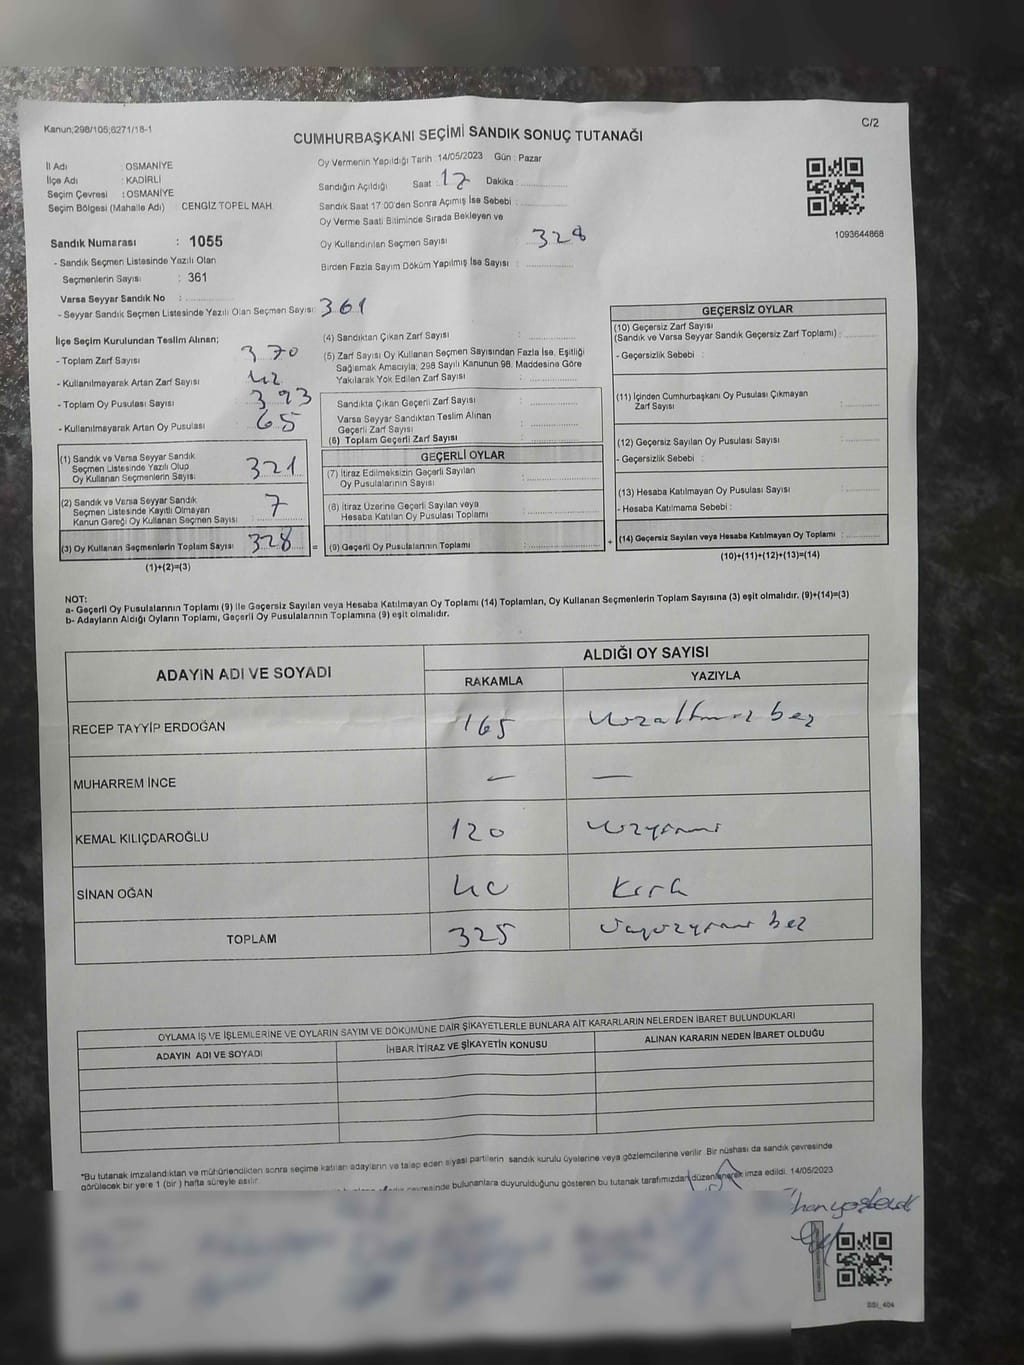 Kanun;298/105;6271/18-1
C/2
CUMHURBAŞKANI SEÇİMİ SANDIK SONUÇ TUTANAĞI
İl Adı : OSMANİYE
İlçe Adı : KADİRLİ
Seçim Çevresi : OSMANİYE
Seçim Bölgesi (Mahalle Adı) : CENGİZ TOPEL MAH.
Oy Vermenin Yapıldığı Tarih : 14/05/2023 Gün : Pazar
Sandığın Açıldığı Saat : 17 Dakika :
Sandık Saat 17:00'den Sonra Açımış İse Sebebi :
Oy Verme Saati Bitiminde Sırada Bekleyen ve
Oy Kullandırılan Seçmen Sayısı : 328
Birden Fazla Sayım Döküm Yapılmış İse Sayısı :
1093644868
Sandık Numarası : 1055
- Sandık Seçmen Listesinde Yazılı Olan
Seçmenlerin Sayısı : 361
Varsa Seyyar Sandık No :
- Seyyar Sandık Seçmen Listesinde Yazılı Olan Seçmen Sayısı: 361
İlçe Seçim Kurulundan Teslim Alınan;
- Toplam Zarf Sayısı : 370
- Kullanılmayarak Artan Zarf Sayısı : 42
- Toplam Oy Pusulası Sayısı : 393
- Kullanılmayarak Artan Oy Pusulası : 65
(1) Sandık ve Varsa Seyyar Sandık
Seçmen Listesinde Yazılı Olup
Oy Kullanan Seçmenlerin Sayısı : 321
(2) Sandık ve Varsa Seyyar Sandık
Seçmen Listesinde Kayıtlı Olmayan
Kanun Gereği Oy Kullanan Seçmen Sayısı : 7
(3) Oy Kullanan Seçmenlerin Toplam Sayısı : 328
(1)+(2)=(3)
(4) Sandıktan Çıkan Zarf Sayısı :
(5) Zarf Sayısı Oy Kullanan Seçmen Sayısından Fazla İse, Eşitliği
Sağlamak Amacıyla; 298 Sayılı Kanunun 98. Maddesine Göre
Yakılarak Yok Edilen Zarf Sayısı :
Sandıkta Çıkan Geçerli Zarf Sayısı :
Varsa Seyyar Sandıktan Teslim Alınan
Geçerli Zarf Sayısı :
(6) Toplam Geçerli Zarf Sayısı :
GEÇERLİ OYLAR
(7) İtiraz Edilmeksizin Geçerli Sayılan
Oy Pusulalarının Sayısı :
(8) İtiraz Üzerine Geçerli Sayılan veya
Hesaba Katılan Oy Pusulası Toplamı :
= (9) Geçerli Oy Pusulalarının Toplamı :
GEÇERSİZ OYLAR
(10) Geçersiz Zarf Sayısı
(Sandık ve Varsa Seyyar Sandık Geçersiz Zarf Toplamı) :
- Geçersizlik Sebebi :
(11) İçinden Cumhurbaşkanı Oy Pusulası Çıkmayan
Zarf Sayısı :
(12) Geçersiz Sayılan Oy Pusulası Sayısı :
- Geçersizlik Sebebi :
(13) Hesaba Katılmayan Oy Pusulası Sayısı :
- Hesaba Katılmama Sebebi :
+ (14) Geçersiz Sayılan veya Hesaba Katılmayan Oy Toplamı :
(10)+(11)+(12)+(13)=(14)
NOT:
a- Geçerli Oy Pusulalarının Toplamı (9) ile Geçersiz Sayılan veya Hesaba Katılmayan Oy Toplamı (14) Toplamları, Oy Kullanan Seçmenlerin Toplam Sayısına (3) eşit olmalıdır. (9)+(14)=(3)
b- Adayların Aldığı Oyların Toplamı, Geçerli Oy Pusulalarının Toplamına (9) eşit olmalıdır.
ADAYIN ADI VE SOYADI
ALDIĞI OY SAYISI
RAKAMLA YAZIYLA
RECEP TAYYİP ERDOĞAN 165 yüzaltmış beş
MUHARREM İNCE — —
KEMAL KILIÇDAROĞLU 120 yüzyirmi
SİNAN OĞAN 40 Kırk
TOPLAM 325 üçyüzyirmi beş
OYLAMA İŞ VE İŞLEMLERİNE VE OYLARIN SAYIM VE DÖKÜMÜNE DAİR ŞİKAYETLERLE BUNLARA AİT KARARLARIN NELERDEN İBARET BULUNDUKLARI
ADAYIN ADI VE SOYADI İHBAR İTİRAZ VE ŞİKAYETİN KONUSU ALINAN KARARIN NEDEN İBARET OLDUĞU
*Bu tutanak imzalandıktan ve mühürlendikten sonra seçime katılan adayların ve talep eden siyasi partilerin sandık kurulu üyelerine veya gözlemcilerine verilir. Bir nüshası da sandık çevresinde
görülecek bir yere 1 (bir ) hafta süreyle asılır.
çevresinde bulunanlara duyurulduğunu gösteren bu tutanak tarafımızdan düzenlenerek imza edildi. 14/05/2023
SSİ_404